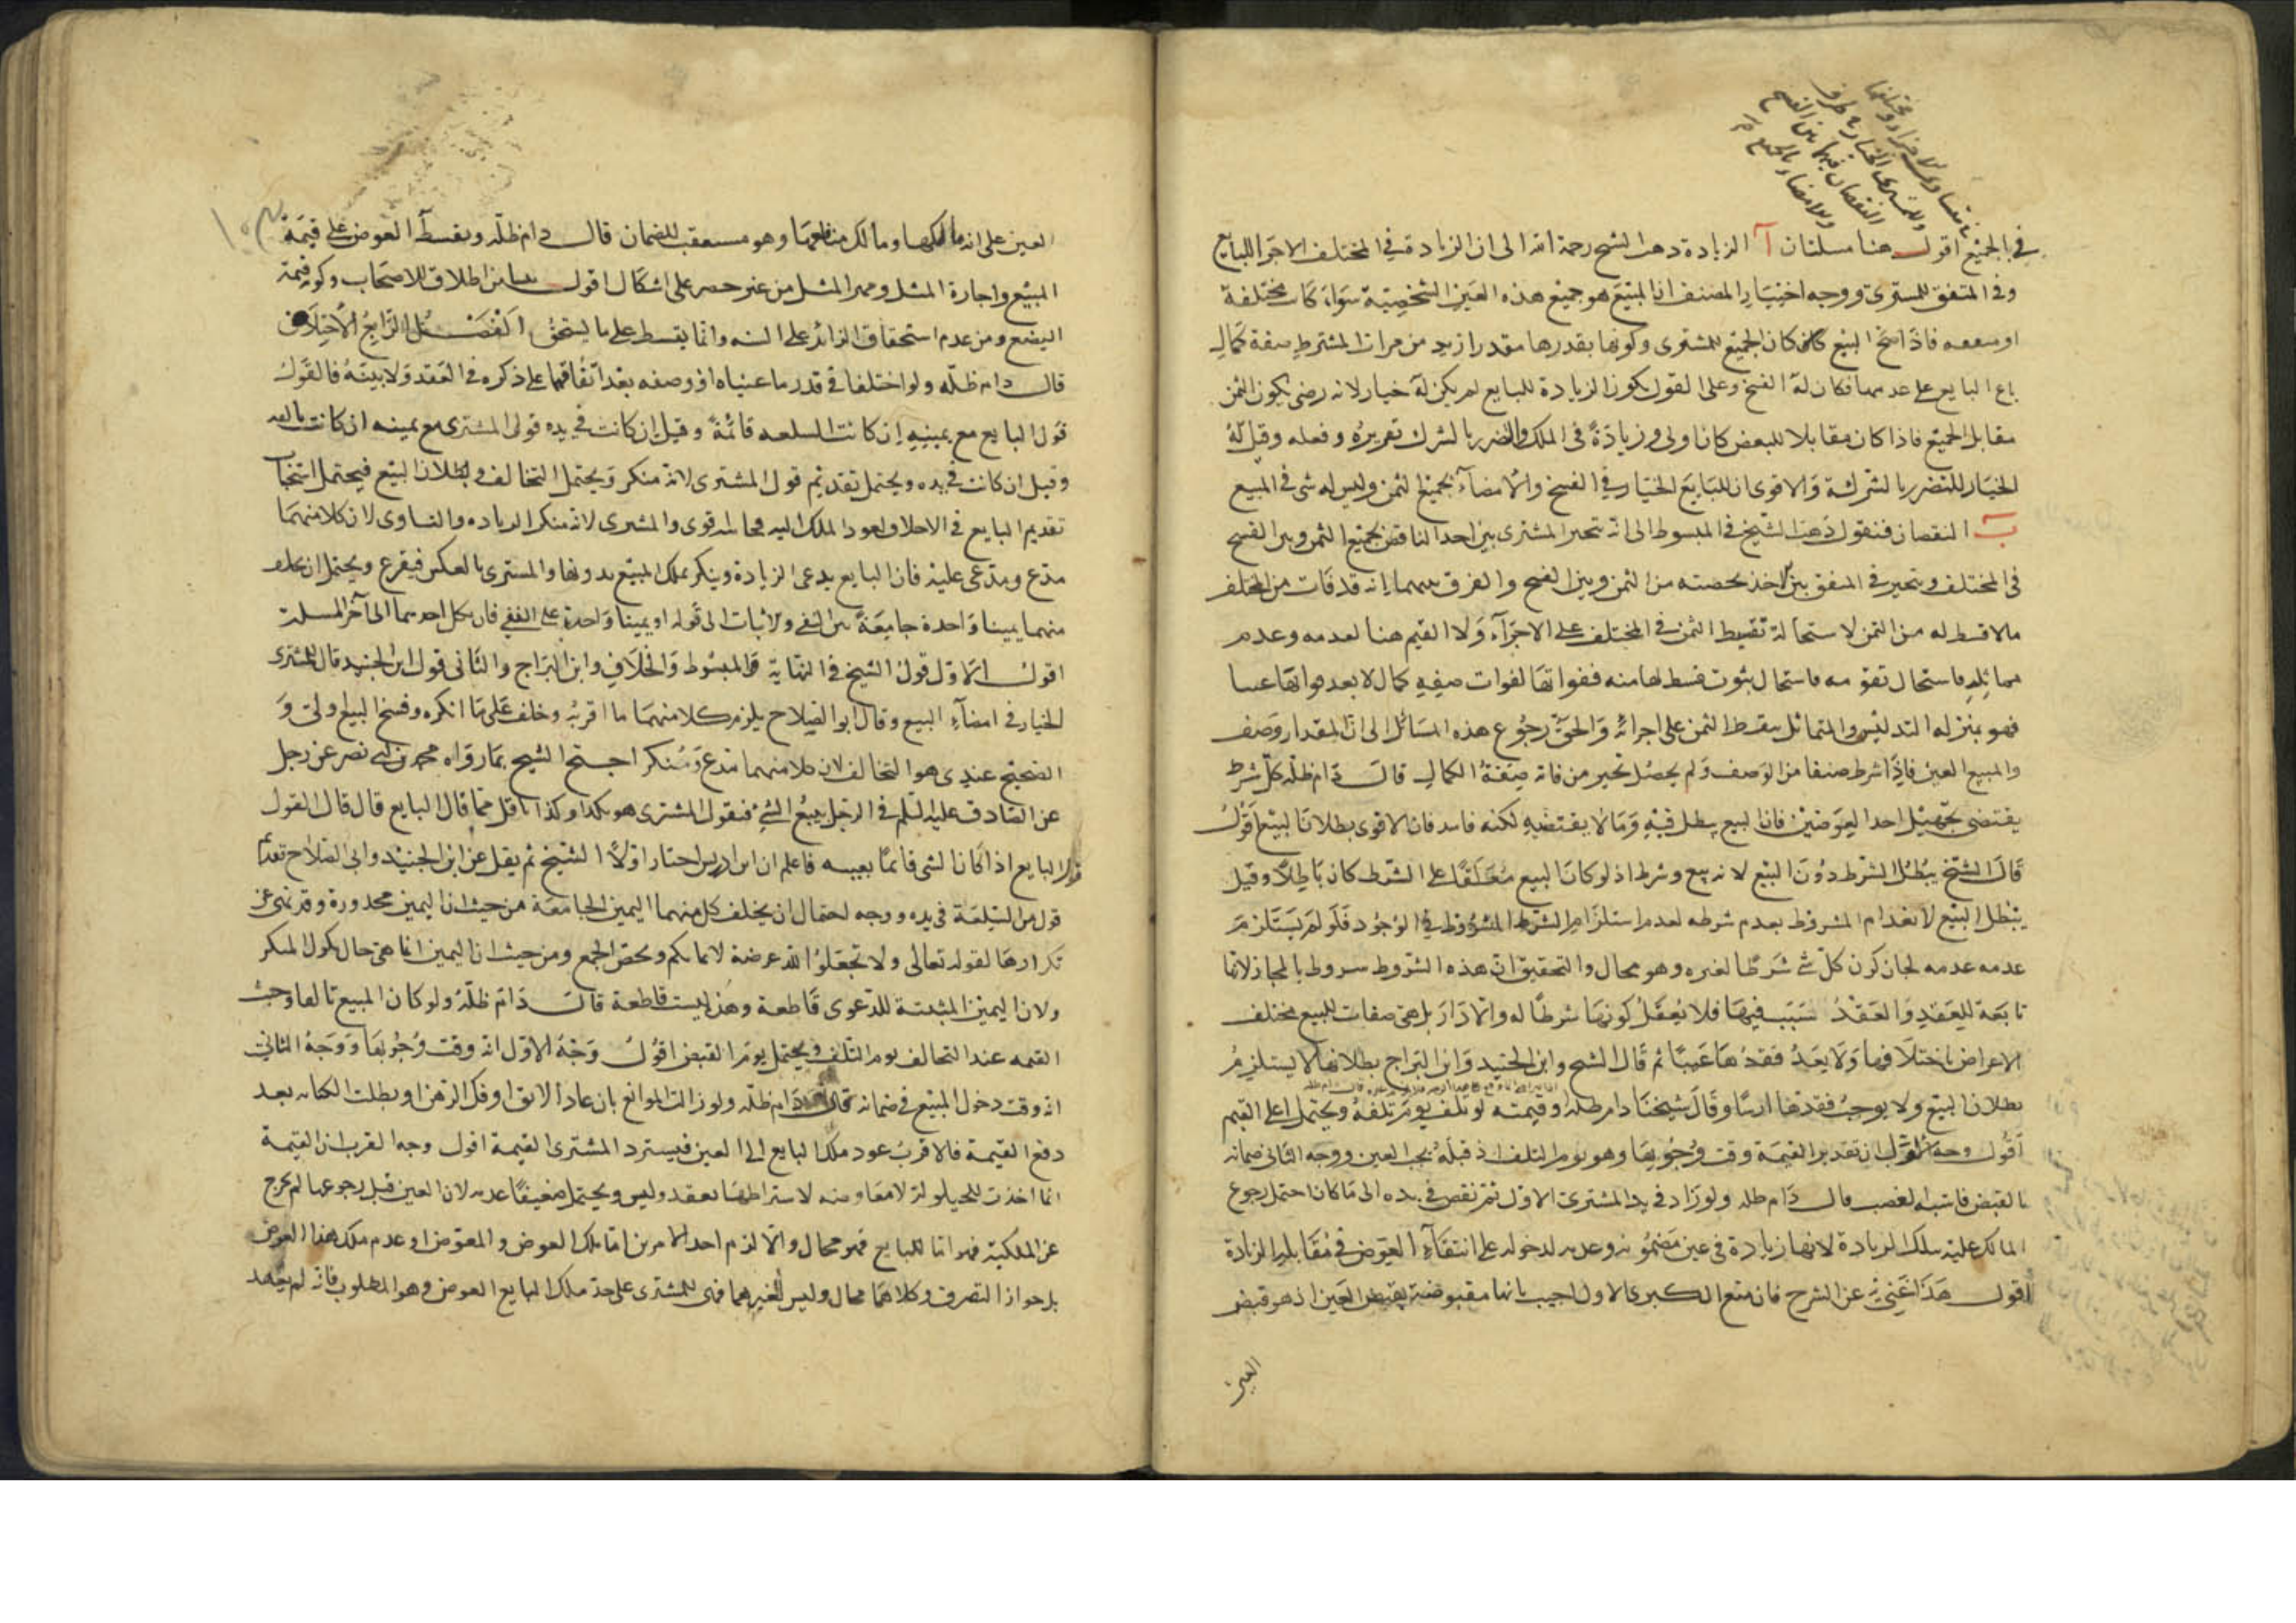 في الجميع اقول هنا مسئلتان آ الزيادة ذهب الشيخ رحمه الله الى ان الزيادة في المختلف الاجزا للبايع
وفى المتفق للمشترى ووجه اختيار المصنف ان المبيع هو جميع هذه العين الشخصية سواء كانت مختلفة
او متفقه فاذا صح البيع كان الجميع للمشترى وكونها بقدرها مقدر ازيد من مرات المشترط صفة كمال
باع البايع على عدمها فكان له الفسخ وعلى القول بكون الزيادة للبايع لم يكن له خيار لانه رضى بكون الثمن
مقابل الجميع فاذا كان مقابلا للبعض كان اولى وزيادة فى الملك والضرر بالشرك تغريره وفعله وقيل له
الخيار للتضرر بالشركة والاقوى ان للبايع الخيار في الفسخ والامضاء بجميع الثمن وليس له شى في المبيع
ب النقصان فنقول ذهب الشيخ في المبسوط الى انه يتخير المشترى بين اخد الناقص بجميع الثمن وبين الفسخ
فى المختلف ويتخير في المتفق بين اخذ بحصته من الثمن وبين الفسخ والفرق بينهما انه قد فات من المختلف
مالا قسط له من الثمن لاستحالة تقسيط الثمن في المختلف على الاجزاء ولا القيم هنا لعدمه وعدم
مماثله فاستحال تقويمه فاستحال ثبوت قسط لها منه ففواتها لفوات صفة كمال لا يعد فواتها عيبا
فهو بمنزله التدليس والمتماثل يقسط الثمن على اجزائه والحق رجوع هذه المسائل الى ان المقدار وصف
والمبيع العين فاذا شرط صنفا من الوصف ولم يحصل تخير من فاته صفة الكمال قال دام ظله كل شرط
يقتضى تجهيل احد العوضين فان البيع يبطل فيه وما لا يقتضيه لكنه فاسد فان الاقوى بطلان البيع اقول
قال الشيخ يبطل الشرط دون البيع لانه بيع وشرط اذ لو كان البيع معلقا على الشرط كان باطلا وقيل
يبطل البيع لانعدام المشروط بعدم شرطه لعدم استلزام الشرط المشروط في الوجود فلو لم يستلزم
عدمه عدمه لجاز كون كل شئ شرطا لغيره وهو محال والتحقيق ان هذه الشروط شروط بالمجاز لانها
تابعة للعقد والعقد سبب فيها فلا يعقل كونها شرطا له والا دار بل هى صفات للبيع مختلف
الاعراض باختلافها ولا يعد فقدها عيبا ثم قال الشيخ وابن الجنيد وابن البراج بطلانها لا يستلزم
بطلان البيع ولا يوجب فقدها ارشا وقال شيخنا دام ظله وقيمته لو تلف يوم تلفه ويحتمل اعلى القيم
اقول وجه الاول ان تقدير القيمة وقت وجوبها وهو يوم التلف اذ قبله يجب العين ووجه الثانى ضمانه
بالقبض فاشبه الغصب قال دام ظله ولو زاد في يد المشترى الاول ثم نقص في يده الى ما كان احتمل رجوع
المالك عليه بتلك الزيادة لانها زيادة فى عين مضمونه وعدمه لدخوله على انتفاء العوض في مقابلة الزيادة
اقول هذا غنى عن الشرح فان منع الكبرى الاول اجيب بانها مقبوضة بقبض العين اذ هو قبض
العين
العين على انه مالكها ومالك منافعها وهو مستعقب للضمان قال دام ظله ويقسط العوض على قيمة
المبيع واجارة المثل ومهر المثل من غير حصر على اشكال اقول ينشا من اطلاق الاصحاب وكونه قيمة
البضع ومن عدم استحقاق الزائد على السنه وانما يقسط على ما يستحق الفصل الرابع الاختلاف
قال دام ظله ولو اختلفا في قدر ما عيناه او وصفه بعد اتفاقهما على ذكره في العقد ولا بينة فالقول
قول البايع مع يمينه ان كانت السلعه قائمة وقيل ان كانت في يده قول المشترى مع يمينه ان كانت تالفه
وقيل ان كانت في يده ويحتمل تقديم قول المشترى لانه منكر ويحتمل التخالف وبطلان البيع فيحتمل استحباب
تقديم البايع في الاحلاف لعود الملك اليه فجانبه اقوى والمشترى لانه منكر الزياده والتساوى لان كلا منهما
مدع ومدعى عليه فان البايع يدعى الزيادة وينكر تملك المبيع بدونها والمشترى بالعكس فيقرع ويحتمل ان يحلف
منهما يمينا واحدة جامعة بين النفى والاثبات الى قوله او يمينا واحدة على النفى فان نكل احدهما الى آخر المسئلة
اقول الاول قول الشيخ في النهاية والمبسوط والخلاف وابن البراج والثانى قول ابن الجنيد قال للمشترى
الخيار في امضاء البيع وقال ابو الصلاح يلزم كلا منهما ما اقر به وحلف على ما انكره وفسخ البيع اولى و
الصحيح عندى هو التخالف لان كلا منهما مدع ومنكر احتج الشيخ بما رواه محمد بن ابى نصر عن رجل
عن الصادق عليه السلم في الرجل يبيع الشئ فيقول المشترى هو بكذا وكذا باقل مما قال البايع قال قال القول
قول البايع اذا كان الشى قائما بعينه فاعلم ان ابن ادريس اختار اولا الشيخ ثم نقل عن ابن الجنيد وابى الصلاح تقديم
قول من السلعة في يده ووجه احتمال ان يحلف كل منهما اليمين الجامعة من حيث ان اليمين محذورة وقد نهى عن
تكرارها لقوله تعالى ولا تجعلوا الله عرضة لايمانكم ومحض الجمع ومن حيث ان اليمين انما هى حال نكول المنكر
ولان اليمين المثبتة للدعوى قاطعة وهذه ليست قاطعة قال دام ظله ولو كان المبيع تالفا وجبت
القيمه عند التحالف يوم التلف ويحتمل يوم القبض اقول وجه الاول انه وقت وجوبها ووجه الثانى
انه وقت دخول المبيع في ضمانه قال دام ظله ولو زالت الموانع بان عاد الابق او فك الرهن او بطلت الكتابه بعد
دفع القيمة فالاقرب عود ملك البايع الى العين فيسترد المشترى القيمة اقول وجه القرب ان القيمة
انما اخذت للحيلولة لا معاوضه لاشتراطها بعقد وليس ويحتمل ضعيفا عدمه لان العين قبل رجوعها لم تخرج
عن الملكية فهو اما للبايع فهو محال والا لزم احد الامرين اما ملك العوض والمعوض او عدم ملك هذا العوض
بل جواز التصرف وكلاهما محال وليس لغيرهما فهى للمشترى على حد ملك البايع العوض وهو المطلوب فانه لم يعهد